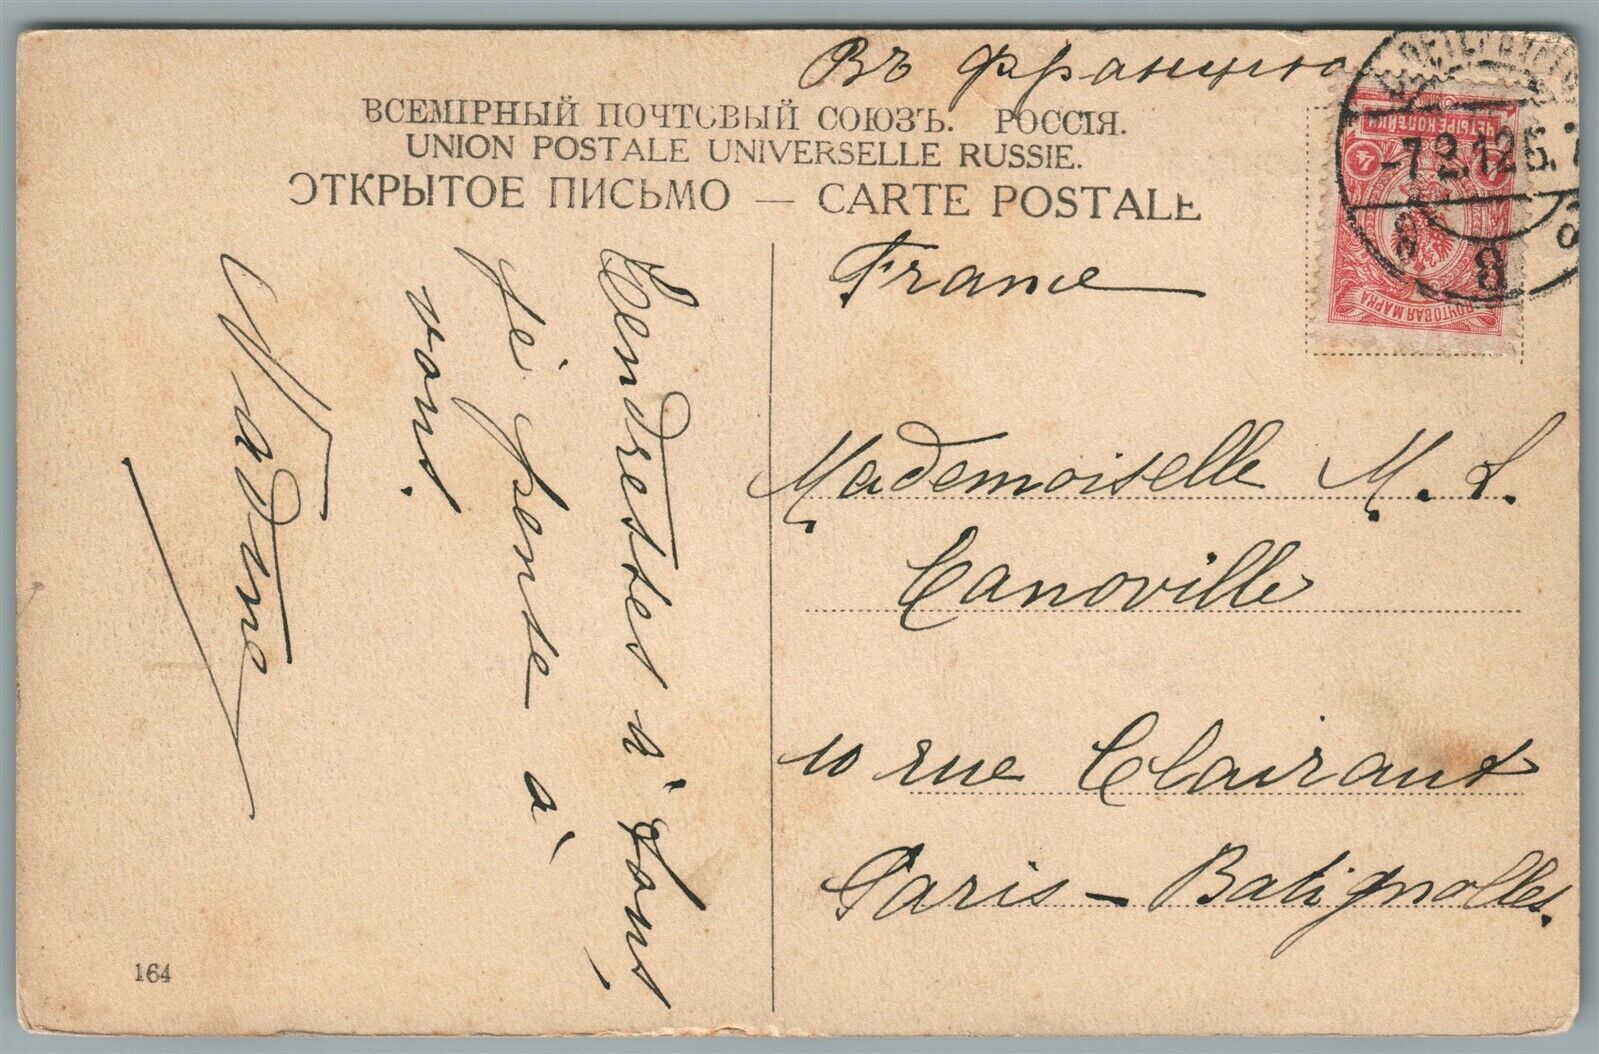 Въ Францію
ВСЕМІРНЫЙ ПОЧТОВЫЙ СОЮЗЪ. РОССІЯ.
UNION POSTALE UNIVERSELLE RUSSIE.
ОТКРЫТОЕ ПИСЬМО — CARTE POSTALE
France
Mademoiselle M. L.
Canoville
10 rue Clairaut
Paris – Batignolles.
Tendresses à tous,
je pense à
vous.
Nadine
164
ЧЕТЫРЕ КОПѢЙКИ
4
ПОЧТОВАЯ МАРКА
-7.2.12
8